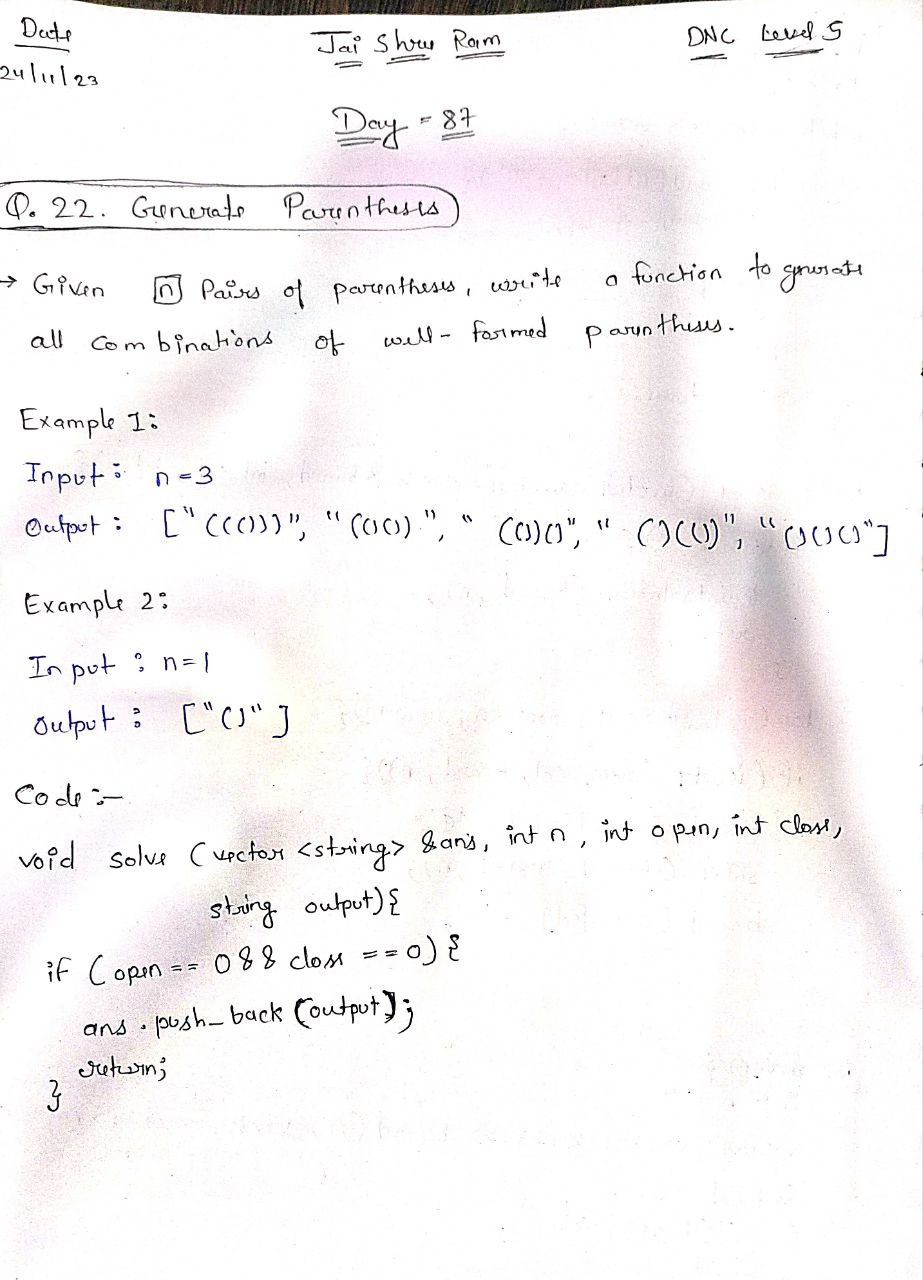 Date
24/11/23
Jai Shree Ram
DNC Level 5
Day = 87
Q. 22. Generate Parenthesis
→ Given n Pairs of parentheses, write a function to generate
all combinations of well-formed parentheses.
Example 1:
Input: n=3
Output: ["((()))", "(()())", "(())()", "()(())", "()()()"]
Example 2:
Input: n=1
Output: ["()"]
Code :-
void solve (vector <string> &ans, int n, int open, int close,
string output){
if (open == 0 && close == 0) {
ans.push_back(output);
return;
}